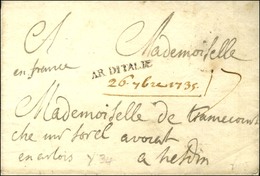 A Mademoiselle
en france
AR. DITALIE
26 7bre 1735
Mademoiselle de tramecourt
che mr sorel avocat
en artois a hesdin